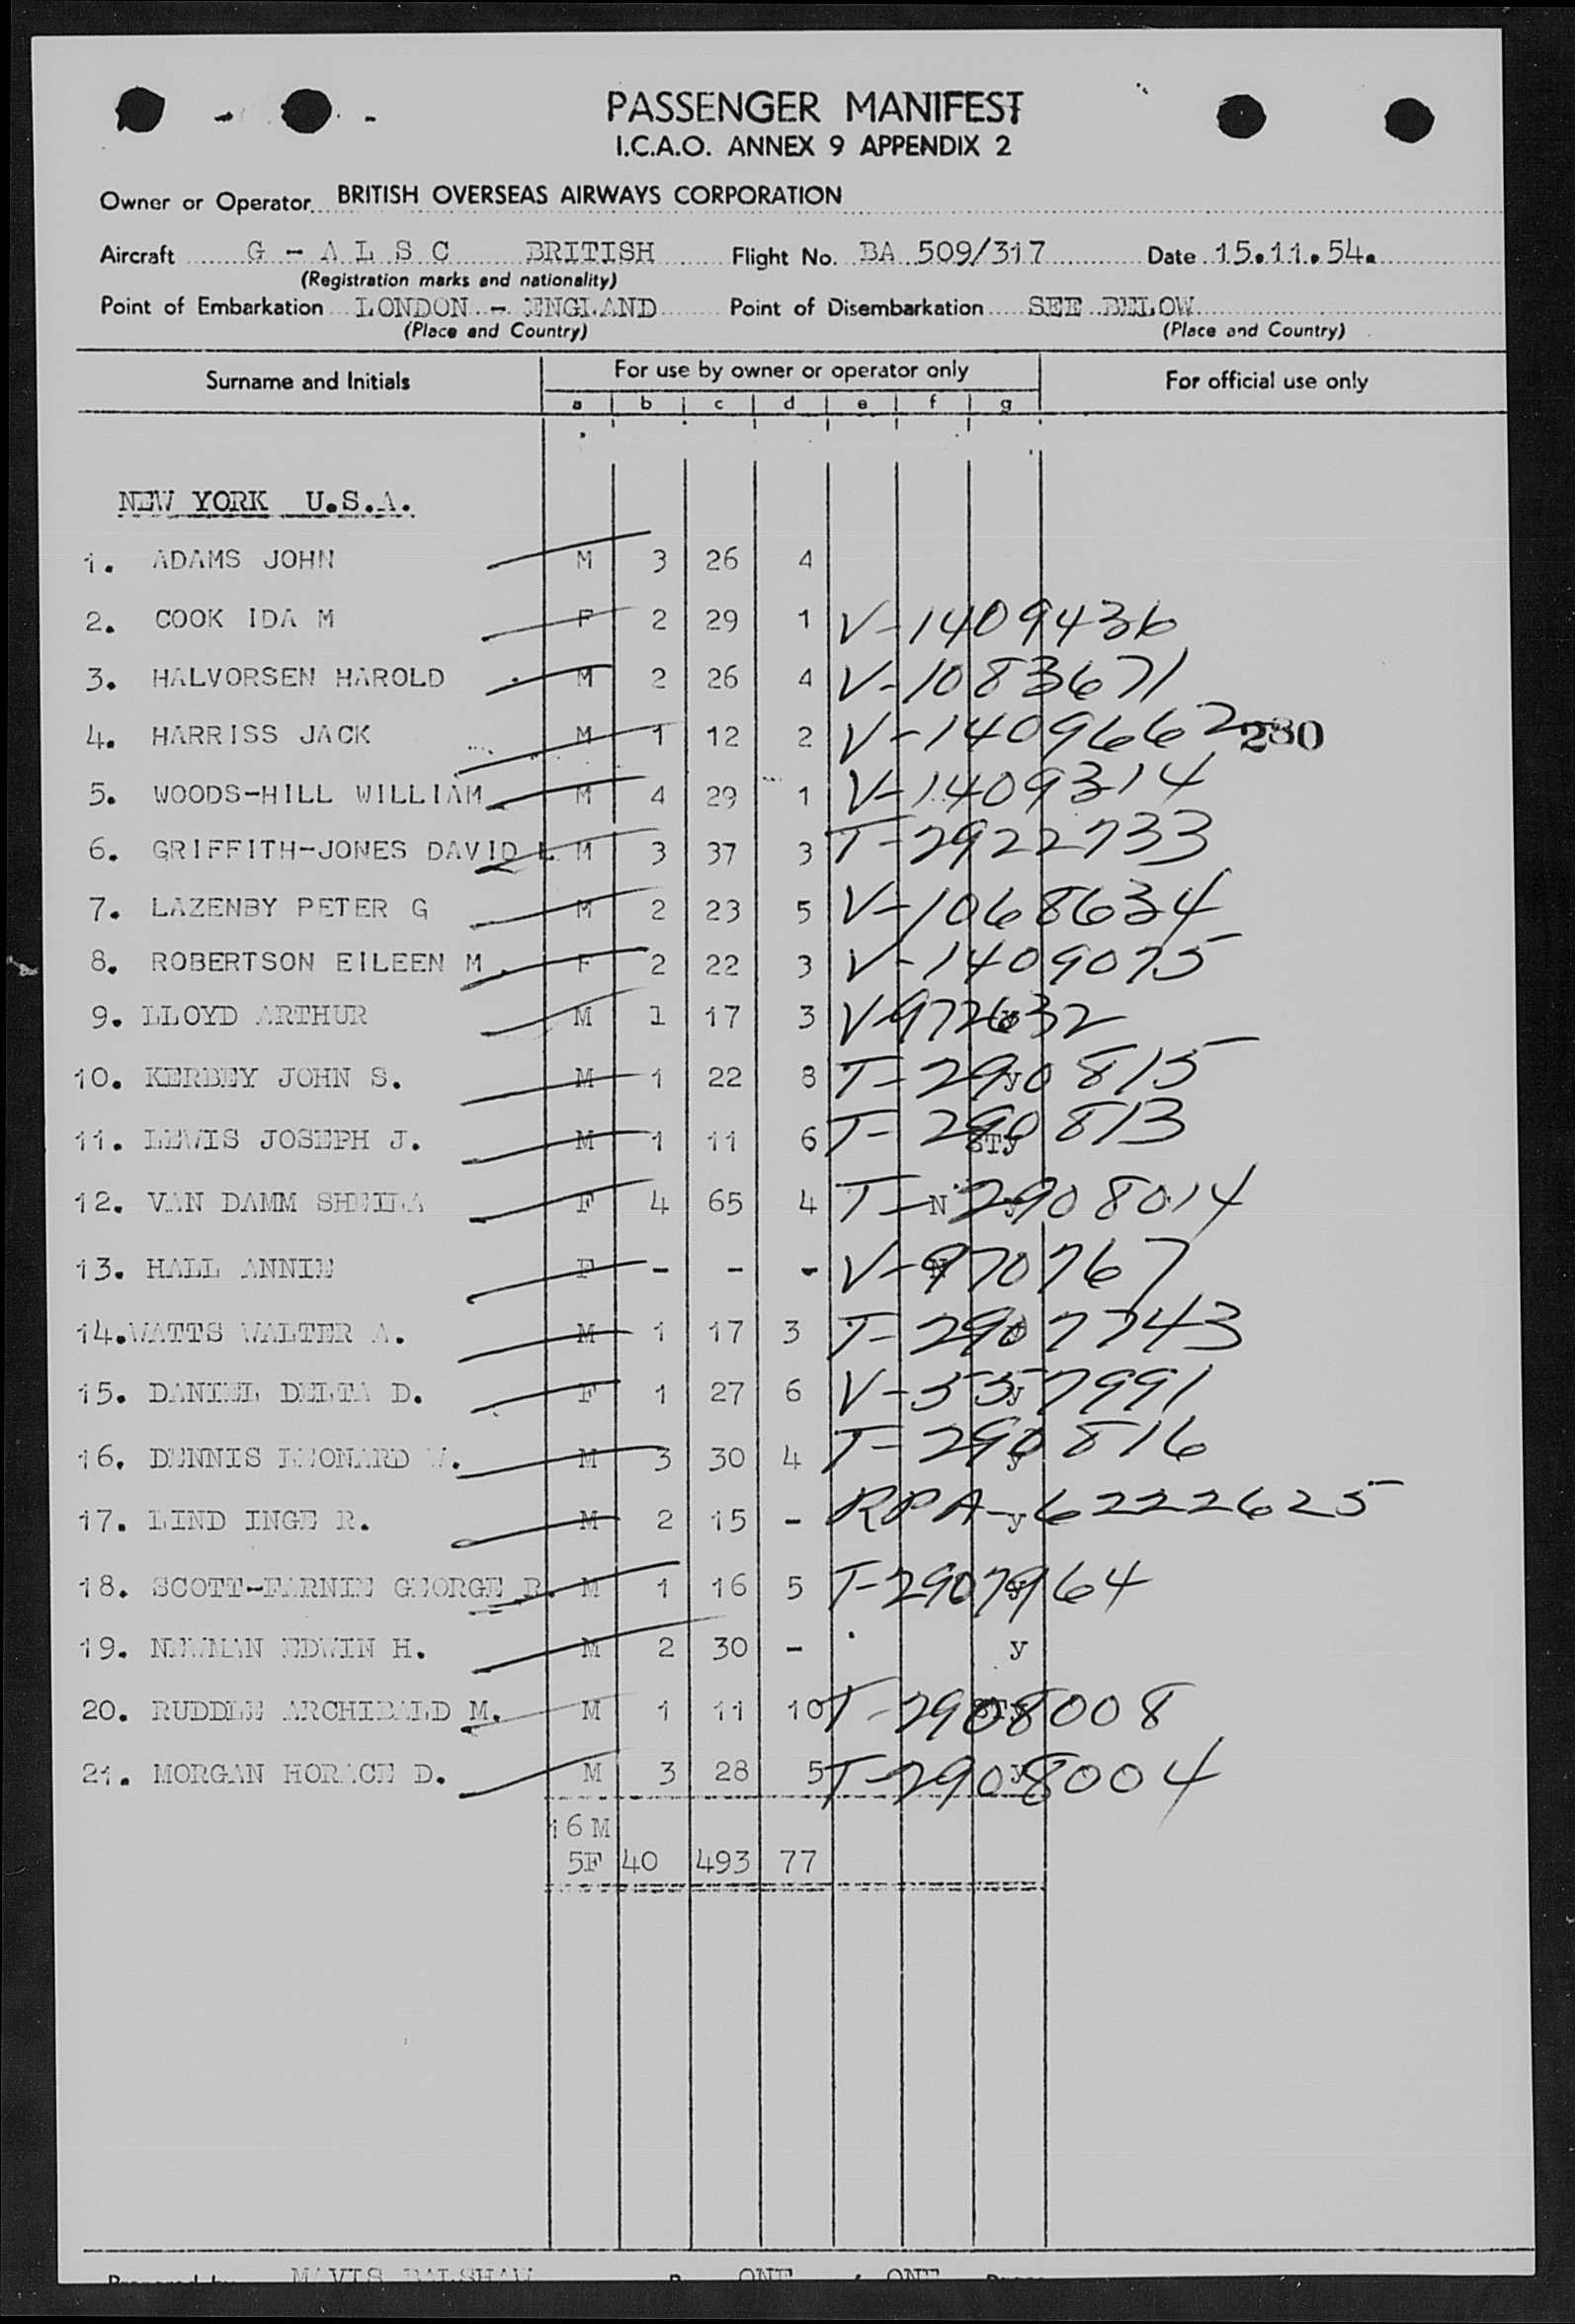 PASSENGER MANIFEST
I.C.A.O. ANNEX 9 APPENDIX 2
Owner or Operator BRITISH OVERSEAS AIRWAYS CORPORATION
Aircraft G - A L S C BRITISH Flight No. BA 509/317 Date 15.11.54.
(Registration marks and nationality)
Point of Embarkation LONDON - ENGLAND Point of Disembarkation SEE BELOW
(Place and Country) (Place and Country)
Surname and Initials For use by owner or operator only For official use only
a b c d e f g
NEW YORK U.S.A.
1. ADAMS JOHN M 3 26 4
2. COOK IDA M F 2 29 1 V-1409436
3. HALVORSEN HAROLD M 2 26 4 V-1083671
4. HARRISS JACK M 1 12 2 V-1409662 280
5. WOODS-HILL WILLIAM M 4 29 1 V-1409314
6. GRIFFITH-JONES DAVID L M 3 37 3 T-2922733
7. LAZENBY PETER G M 2 23 5 V-1068634
8. ROBERTSON EILEEN M. F 2 22 3 V-1409075
9. LLOYD ARTHUR M 1 17 3 V-972632
10. KERBEY JOHN S. M 1 22 8 T-2900815 y
11. LEWIS JOSEPH J. M 1 11 6 T-290813 STy
12. VAN DAMM SHEILA F 4 65 4 T-2908014 N y
13. HALL ANNIE F - - - V-970767 N
14. WATTS WALTER A. M 1 17 3 T-2907743 y
15. DANIEL DELTA D. F 1 27 6 V-3357991 y
16. DENNIS LEONARD W. M 3 30 4 T-290816 y
17. LIND INGE R. M 2 15 - RPA-6222625 y
18. SCOTT-FARNIE GEORGE R. M 1 16 5 T-2907964 y
19. NEWMAN EDWIN H. M 2 30 - y
20. RUDDLE ARCHIBALD M. M 1 11 10 T-2908008
21. MORGAN HORACE D. M 3 28 5 T-2908004 y
16M
5F 40 493 77
Prepared by MAVIS BALSHAW ONE ONE